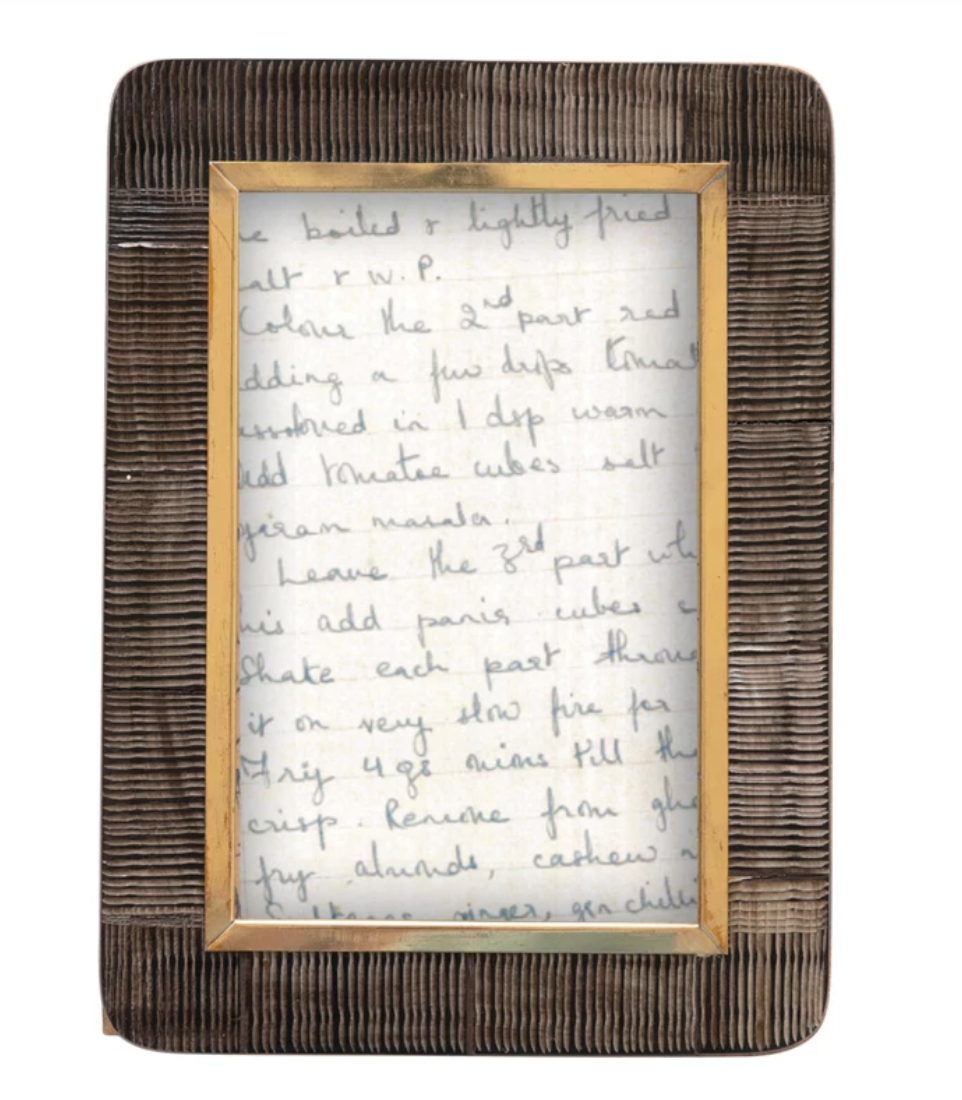 boiled & lightly fried
alt & w. P.
Colour the 2nd part red
dding a few drops tomat
ssolved in 1 dsp warm
add tomatoe cubes salt
garam masala.
Leave the 3rd part wh
his add panir cubes
Shake each part throu
it on very slow fire for
Fry 4 gs mins till the
crisp. Remove from ghe
fry almonds, cashew
Sultanas ginger, grn chilli